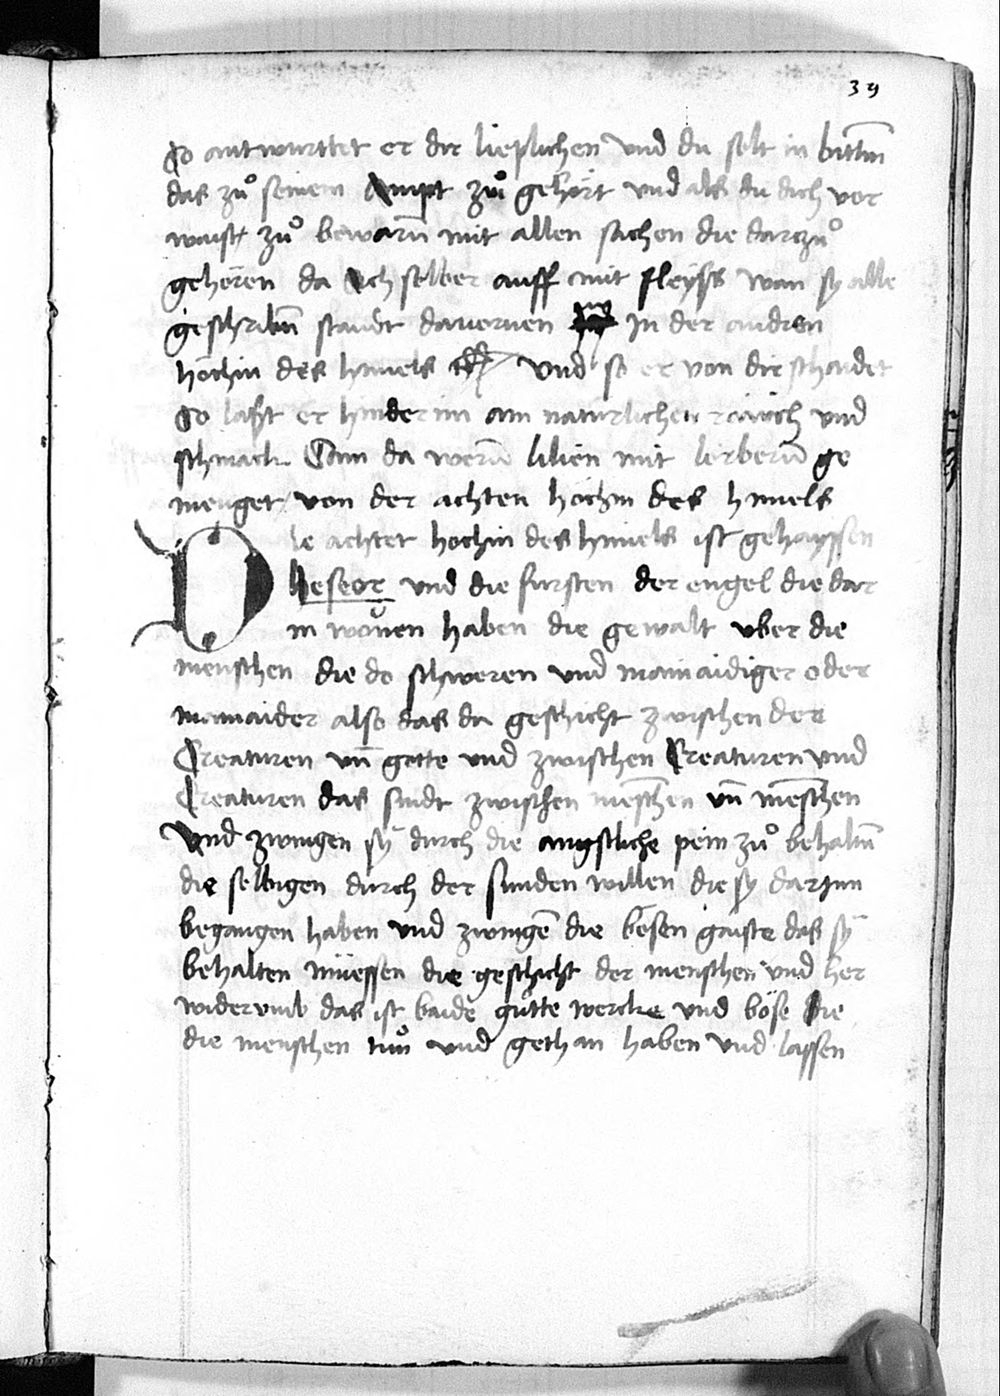 39
So antwurttet er dir lieplichen Und du solt in bittm̄
das zuͦ seinem Ampt zuͦ gehört und als du dich vor
waist zuͦ bewarn̄ mit allen sachen die darzuͦ
geheren da sich selber auff mit fleyss wan sy alle
geschribm̄ standt davornen In der andren
hochin des himels Und so er von dir schaidet
So lasst er hinder im ain naturlichen rauch und
schmack Sam da wern̄ lilien mit lorbern̄ ge
menget von der achten hochin des himels
Die achter hochin des himels ist gehayssen
heseor und die fursten der engel die dar
in wonen haben die gewalt uber die
menschen die do schweren und mainaidiger oder
mainaider also das da geschicht zwischen der
Creaturen un̄ gotte und zwischen Creaturen und
Creaturen das sindt zwischen mēschen un̄ mēschen
Und zwingen sy durch die angstliche pein zuͦ behaltn̄
die selbigen durch der sunden willen die sy darjnn
begangen haben und zwingē die besen gaiste das sy
behalten müessen die geschicht der menschen und her
widerumb das ist baide guͦtte wercke und böse die
die menschen tuͦn und gethan haben und lassen